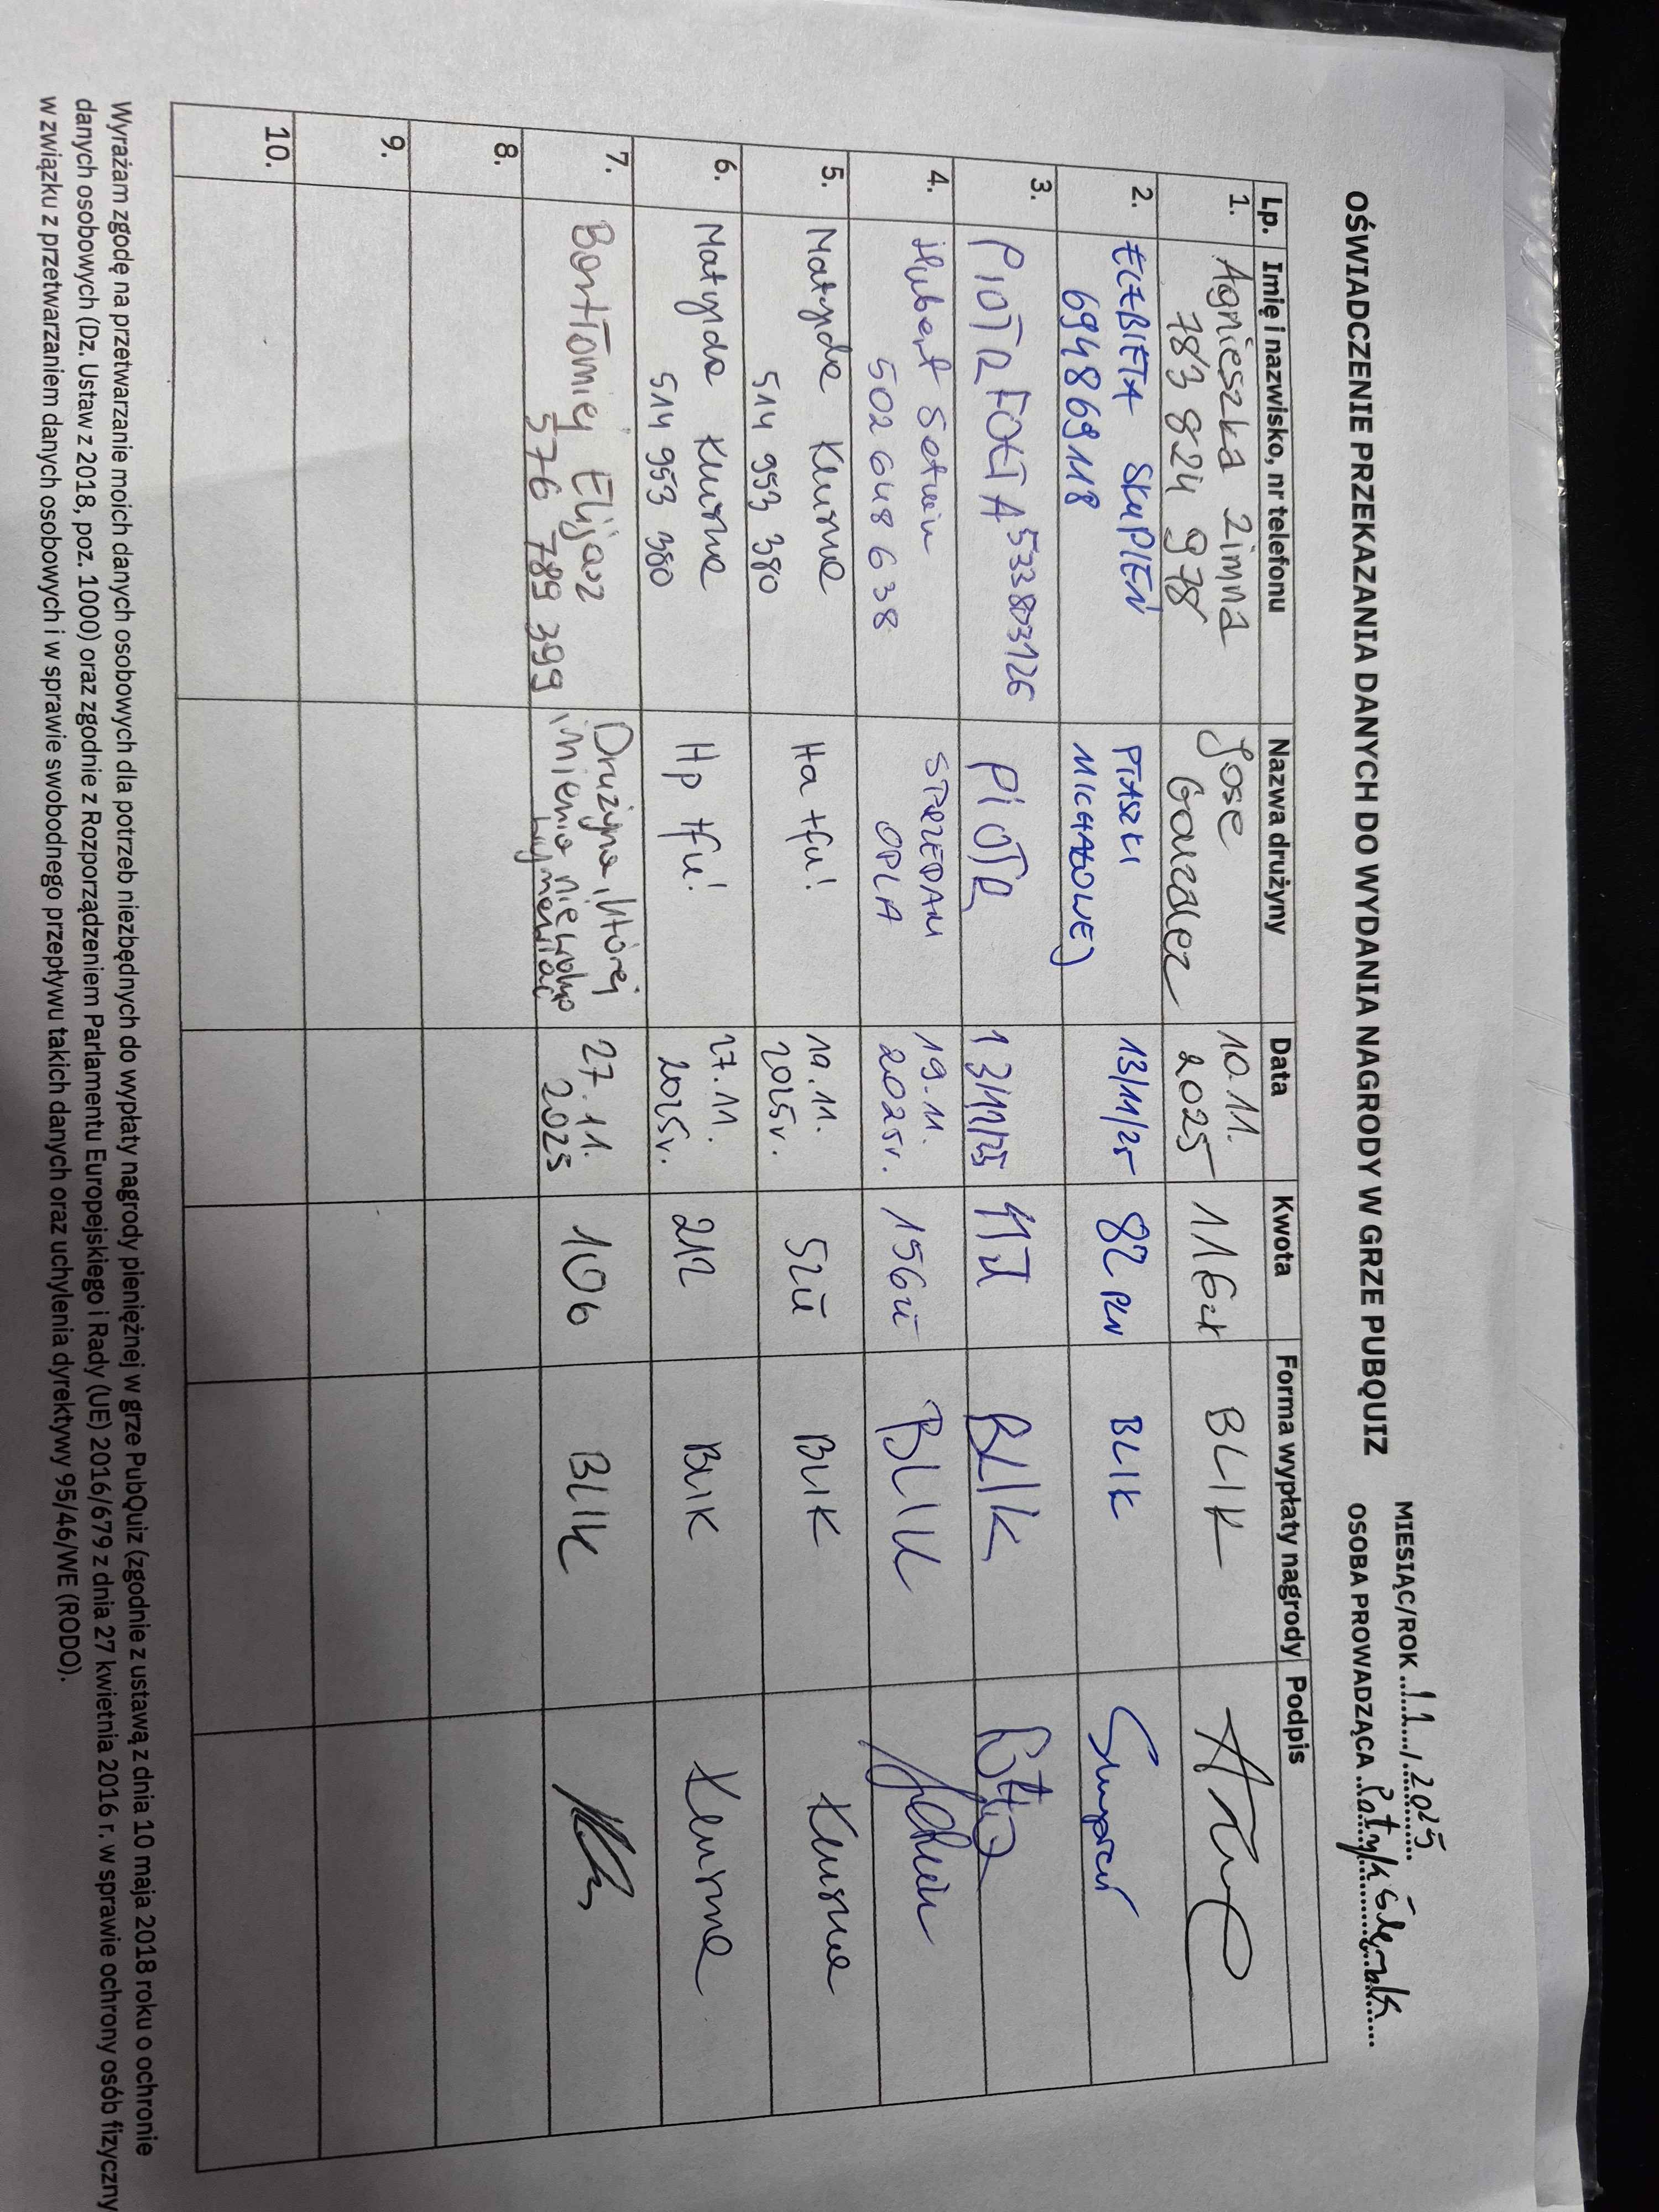 OŚWIADCZENIE PRZEKAZANIA DANYCH DO WYDANIA NAGRODY W GRZE PUBQUIZ
MIESIĄC/ROK 11 / 2025
OSOBA PROWADZĄCA Patryk
Lp. Imię i nazwisko, nr telefonu Nazwa drużyny Data Kwota Forma wypłaty nagrody Podpis
1. Agnieszka Zimna Jose 10.11. 116zł BLIK
783 824 978 Gonzalez 2025
2. ELŻBIETA SKUPIEŃ PTASZKI 13/11/25 82 PLN BLIK
694869118 MICHAŁOWEJ
3. PIOTR 533803126 PIOTR 13/11/25 BLIK
4. Hubert STRZEDAM 19.11. 156zł BLIK
502 648 638 OPLA 2025r.
5. Matylda Ha tfu! 19.11. 52zł BLIK
514 953 380 2025r.
6. Matylda Hp tfu! 27.11. 212 BLIK
514 953 380 2025r.
7. Bartłomiej Elijasz Drużyna, której 27.11. 106 BLIK
576 789 399 imienia nie wolno 2025
wymawiać
8.
9.
10.
Wyrażam zgodę na przetwarzanie moich danych osobowych dla potrzeb niezbędnych do wypłaty nagrody pieniężnej w grze PubQuiz (zgodnie z ustawą z dnia 10 maja 2018 roku o ochronie
danych osobowych (Dz. Ustaw z 2018, poz. 1000) oraz zgodnie z Rozporządzeniem Parlamentu Europejskiego i Rady (UE) 2016/679 z dnia 27 kwietnia 2016 r. w sprawie ochrony osób fizyczny
w związku z przetwarzaniem danych osobowych i w sprawie swobodnego przepływu takich danych oraz uchylenia dyrektywy 95/46/WE (RODO).